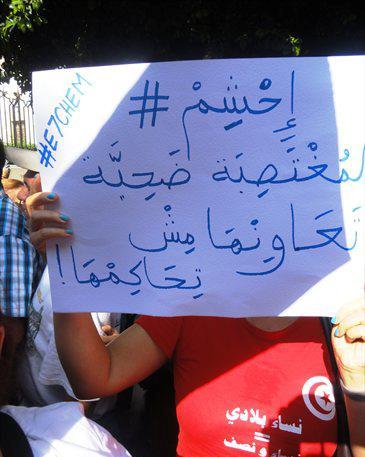 #E7CHEM
# إِحْشِمْ
لمُغْتَصِبَة ضَحِيَّة
تَعَاوِنْهَا مِشْ
تِحَاكِمْهَا!
نساء بلادي
=
نساء و نصف